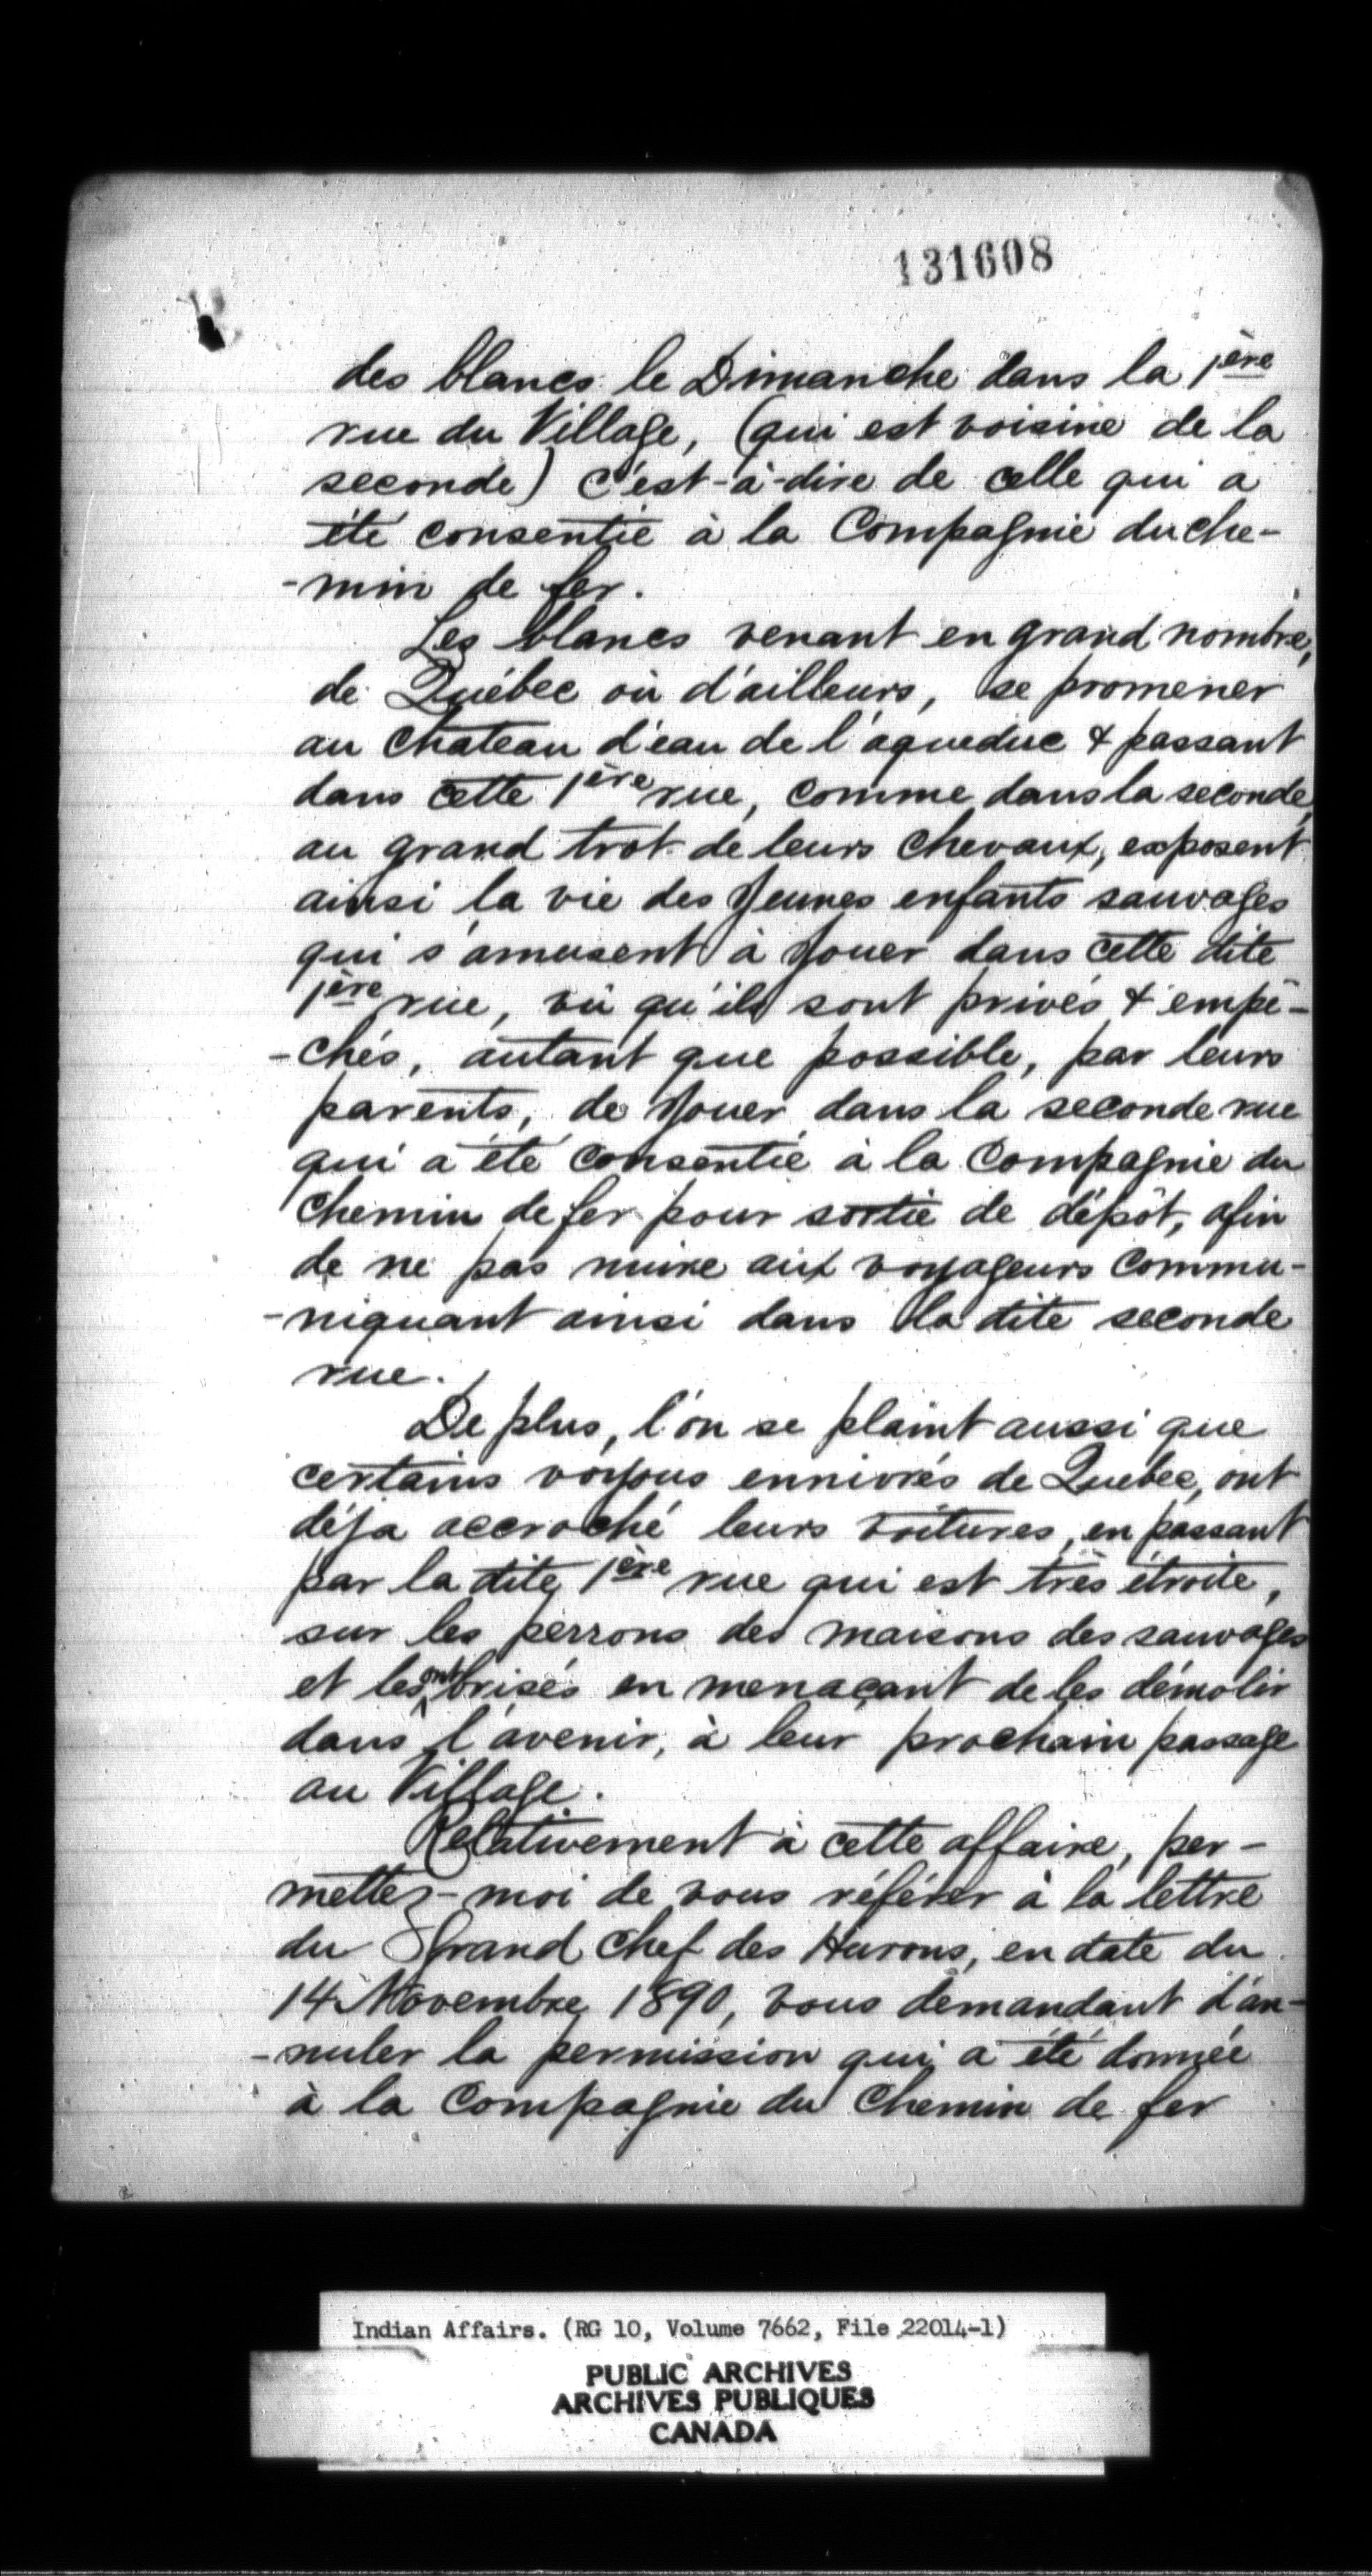 131608
des blancs le Dimanche dans la 1ère
rue du Village, (qui est voisine de la
seconde) c'est-à-dire de celle qui a
été consentie à la Compagnie du che-
-min de fer.
Les blancs venant en grand nombre,
de Québec où d'ailleurs, se promener
au Chateau d'eau de l'aqueduc & passant
dans cette 1ère rue, comme dans la seconde,
au grand trot de leurs chevaux, exposent
ainsi la vie des Jeunes enfants sauvages
qui s'amusent à Jouer dans cette dite
1ère rue, vû qu'ils sont privés & empê-
-chés, autant que possible, par leurs
parents, de Jouer dans la seconde rue
qui a été consentie à la Compagnie du
Chemin de fer pour sortie de dépôt, afin
de ne pas nuire aux voyageurs commu-
-niquant ainsi dans la dite seconde
rue.
De plus, l'on se plaint aussi que
certains voyous ennivrés de Quebec, ont
déja accroché leurs voitures, en passant
par la dite 1ère rue qui est très étroite,
sur les perrons des maisons des sauvages
et les ont brisés en menaçant de les démolir
dans l'avenir, à leur prochain passage
au Village.
Relativement à cette affaire, per-
mettez-moi de vous référer à la lettre
du Grand Chef des Hurons, en date du
14 Novembre 1890, vous demandant d'an-
-nuler la permission qui a été donnée
à la Compagnie du Chemin de fer
Indian Affairs. (RG 10, Volume 7662, File 22014-1)
PUBLIC ARCHIVES
ARCHIVES PUBLIQUES
CANADA